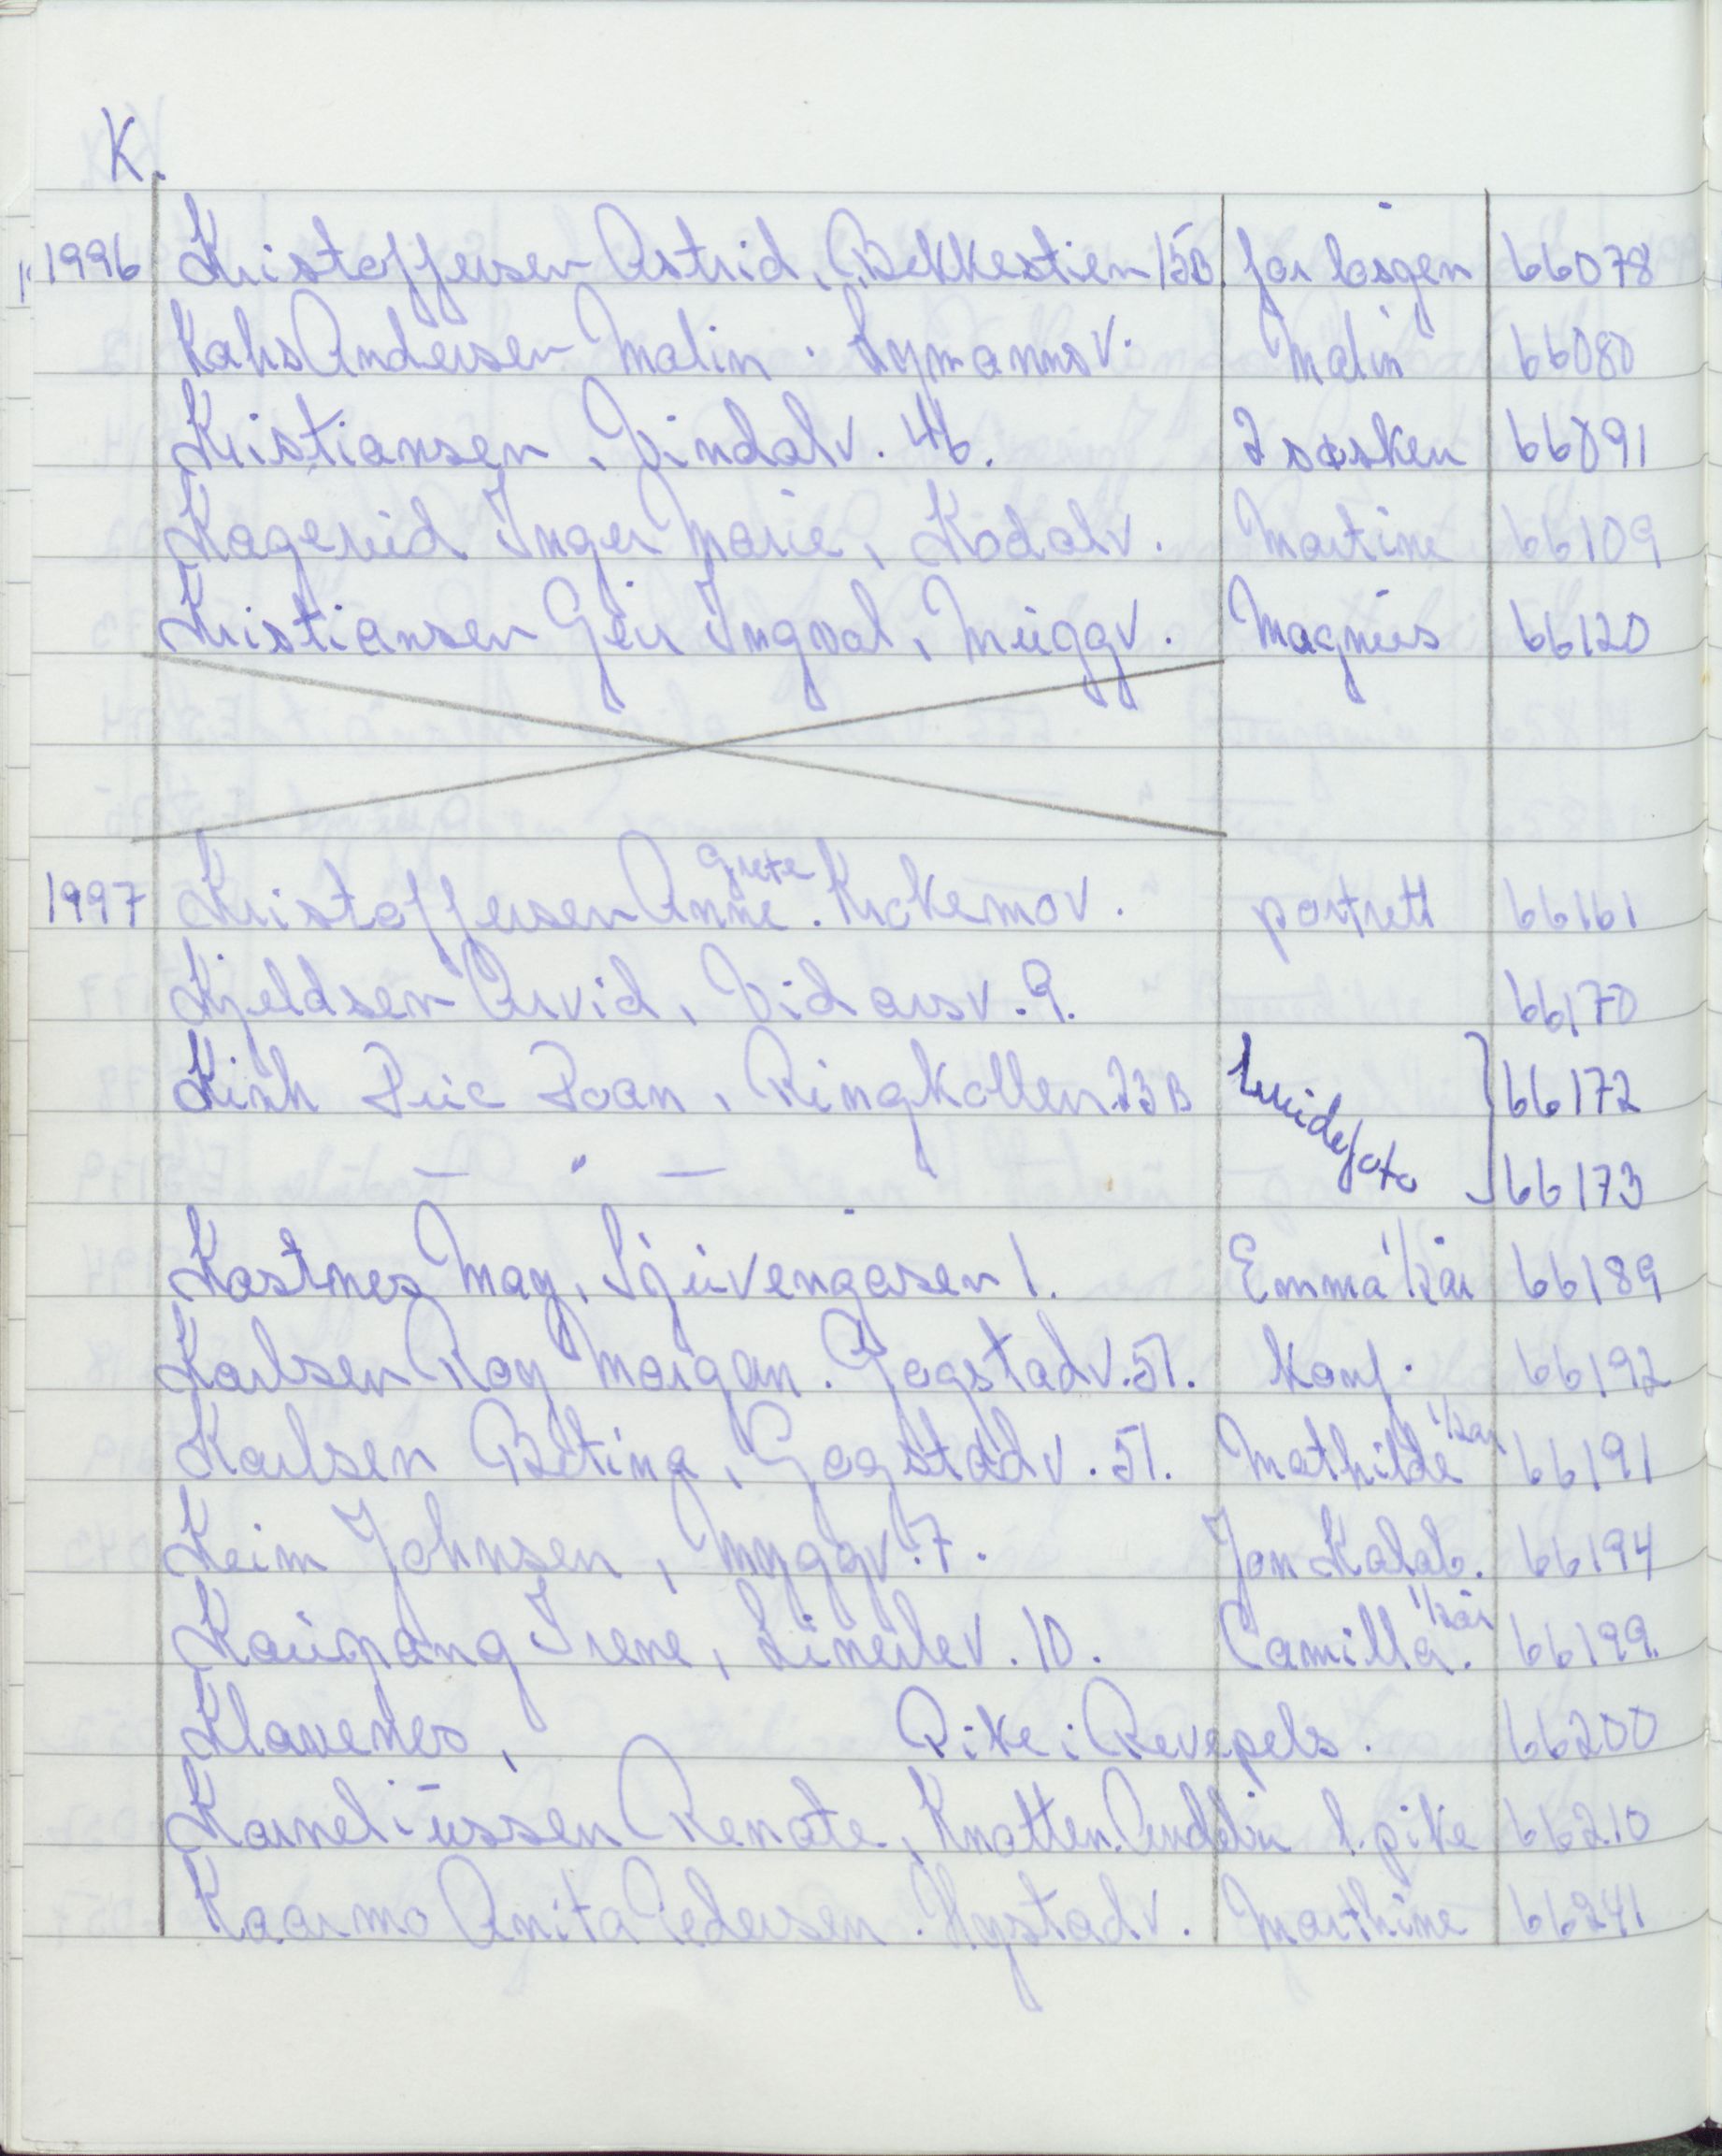 K.
1996 Kristoffersen Astrid, Bekkestien 15B. for logen 66078
Kahs Andersen Malin. Nymanns v. Malin 66080
Kristiansen, Vindalv. 46. 2 søsken 66091
Kagerud Inger Marie, Kodalv. Martine 66109
Kristiansen Geir Ingval, Muggv. Magnus 66120
1997 Kristoffersen Anne Grete. Krokemov. portrett 66161
Kjeldsen Arvid, Vidarsv. 9. 66170
Kirk Roan, Ringkollen 23B 66172
— " — 66173
Kastnes May, Sjuvengåsen 1. Emma 1/2 år 66189
Karlsen Roy Morgan. Gogstadv. 51. Konf. 66192
Karlsen Betina, Gogstadv. 51. Mathilde 1/2 år 66191
Keim Johnsen, Myggv. 7. Jon Kalab. 66194
Kaupang Irene, Linerlev. 10. Camilla. 1/2 år 66199.
Klavenes, Pike i Revepels. 66200
Karneliussen Renate, Knatten. 1. pike 66210
Kaarmo Anita Pedersen. Nystadv. Marthine 66241